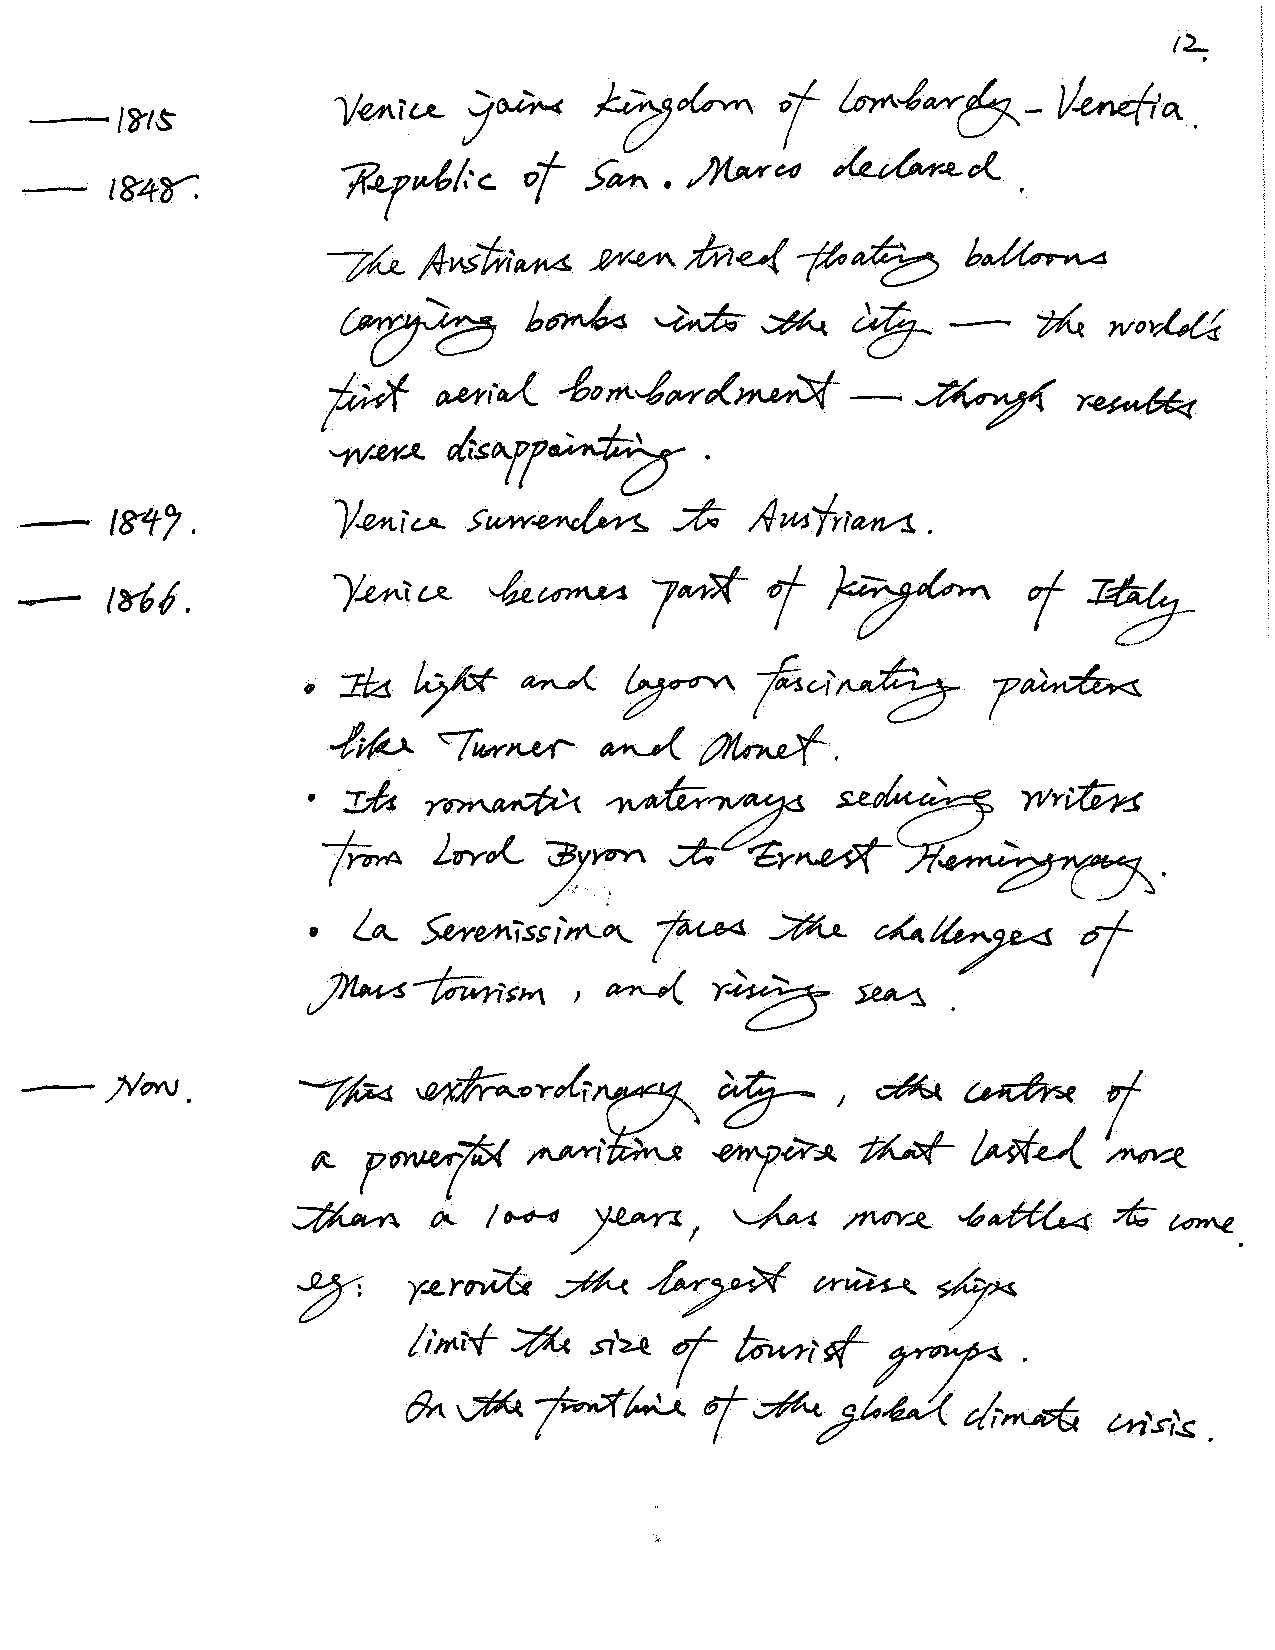 12.
— 1815 Venice joins Kingdom of Lombardy - Venetia.
— 1848. Republic of San. Marco declared.
The Austrians even tried floating balloons
carrying bombs into the city — the world's
first aerial bombardment — though results
were disappointing.
— 1849. Venice surrenders to Austrians.
— 1866. Venice becomes part of Kingdom of Italy
• Its light and lagoon fascinating painters
like Turner and Monet.
• Its romantic waterways seducing writers
from Lord Byron to Ernest Hemingway.
• La Serenissima faces the challenges of
Mass tourism, and rising seas.
— Now. This extraordinary city, the centre of
a powerful maritime empire that lasted more
than a 1000 years, has more battles to come.
eg: reroute the largest cruise ships
limit the size of tourist groups.
On the frontline of the global climate crisis.